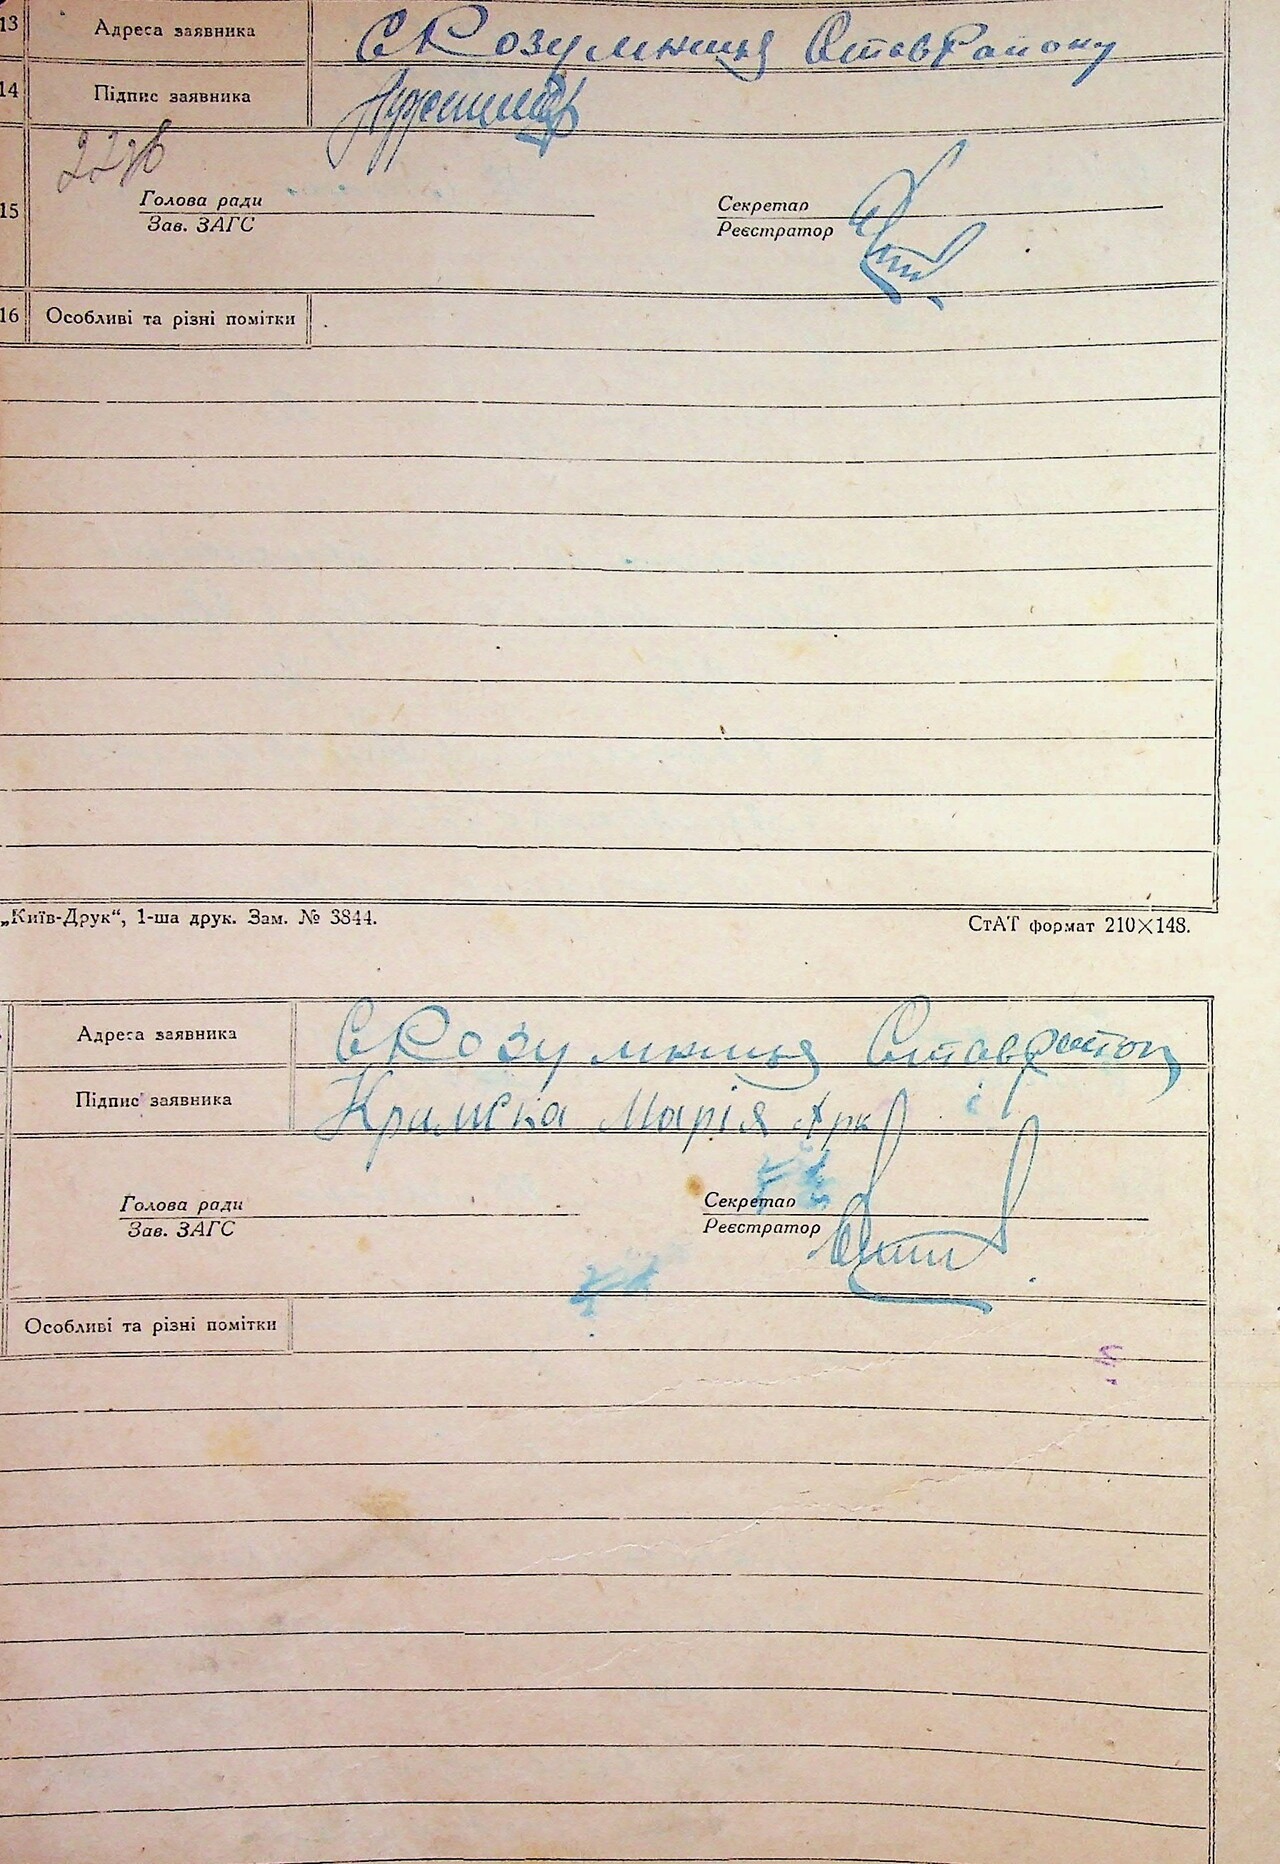 13 Адреса заявника с Розумниця Ставрайону
14 Підпис заявника
15 Голова ради Секретар
Зав. ЗАГС Реєстратор
16 Особливі та різні помітки
„Київ-Друк“, 1-ша друк. Зам. № 3844. СтАТ формат 210×148.
Адреса заявника с Розумниця Ставрайон
Підпис заявника Кримска Марія Арк
Голова ради Секретар
Зав. ЗАГС Реєстратор
Особливі та різні помітки